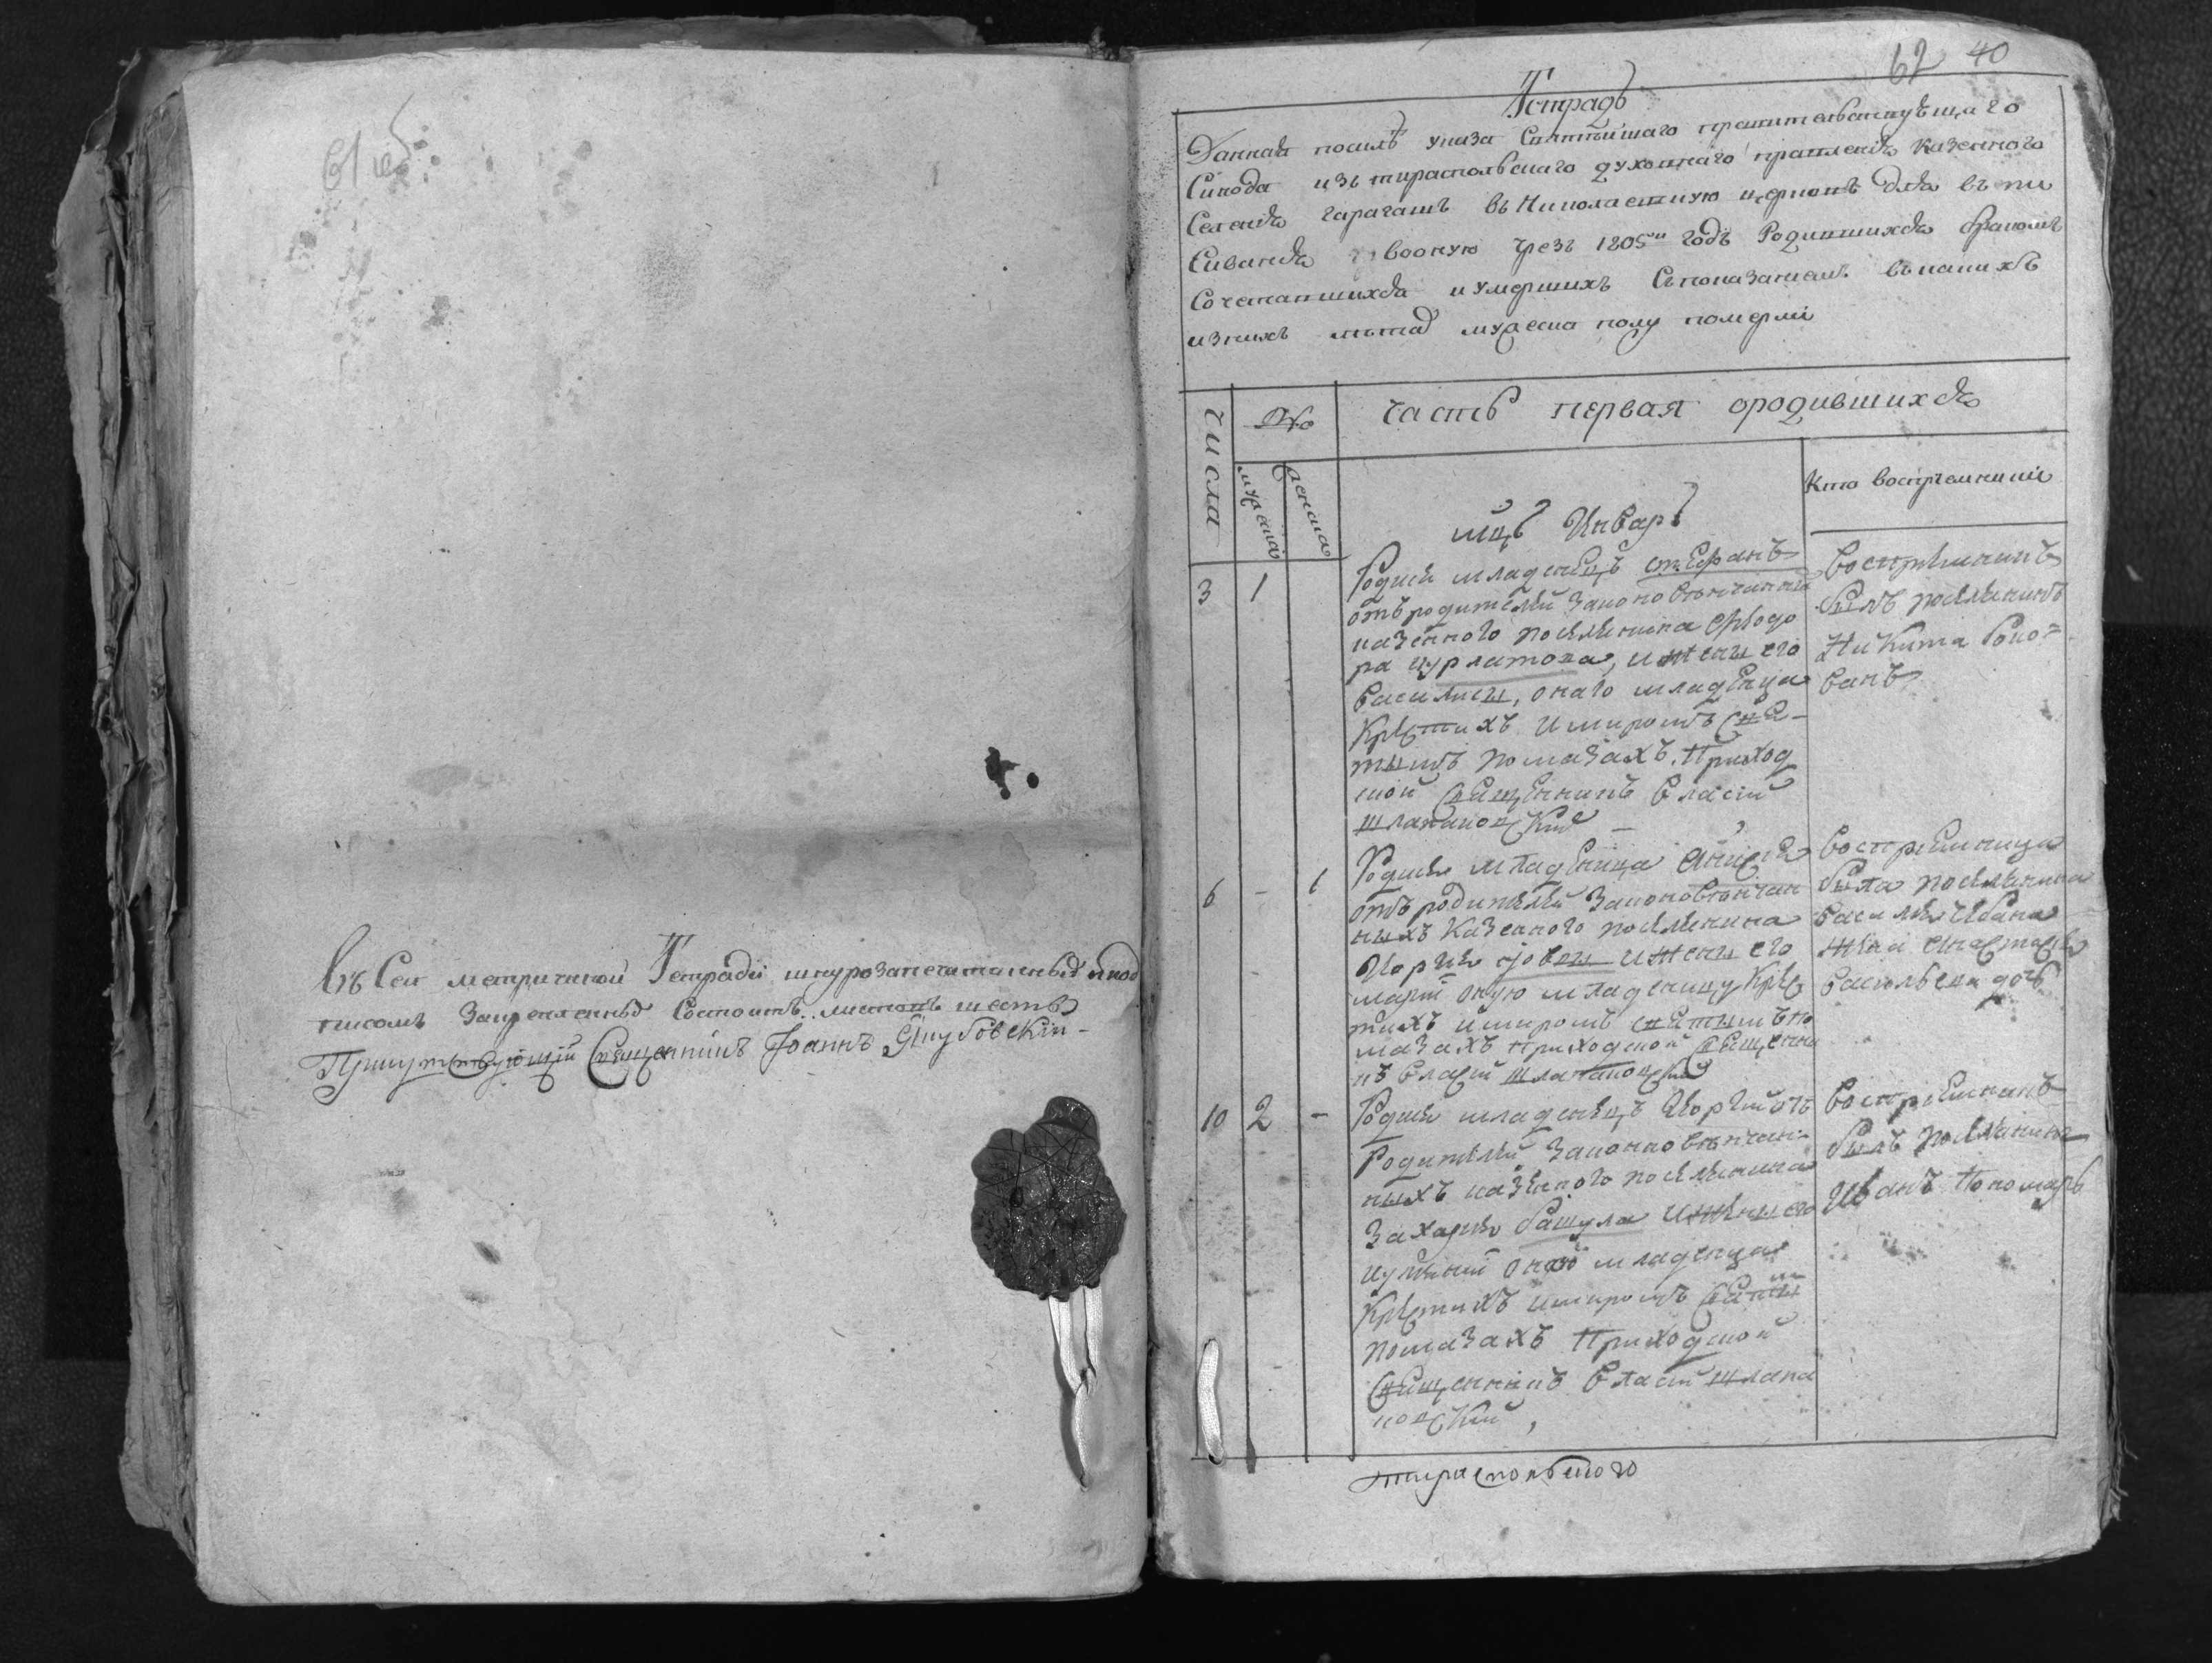 въ Сей метричной Тетради шнурозапечатанныхъ и под
писомъ Закрепленныхъ Состоитъ листовъ шесть
Присутствующій Священникъ Іоаннъ Якубовскій
62 40
Тетрадь
Данная посилѣ указа Святѣйшаго правительствующаго
Синода изъ тираспольскаго духовнаго правленія казенного
Селенія гарагашъ въ Николаевскую церковь для впи
сиванія вооную чрезъ 1805й годъ Родившихся бракомъ
Сочетавшихся и умершихъ Спожазаніемъ въкакихъ
изнихъ лѣтахъ мужеска полу померли
числа
№
часть первая ородившихся
мужеска
женска
мцъ Инваръ
Кто воспріемники
3 1
Родися младенецъ стефанъ
отъ родителей законовѣнчанныхъ
казенного поселянина Ѳеодо
ра курлатова, и жены его
василисы, онаго младенца
Крестихъ и миромъ свя
тымъ помазахъ. Приход
ской священникъ власій
шлапаковскій
воспріемникъ
былъ поселянинъ
Никита
6 - 1
Родися младеница
отъ родителей законовѣнчан
ныхъ казенного поселянина
и жены его
маріи оную младеницу кре
тихъ и миромъ святымъ по
мазахъ приходской священни
къ власій шлапаковскій
воспріемница
была поселянина
василія Ивана
жена анастасія
васильева дочь
10 2 -
Родися младенецъ Иоргій отъ
Родителей законновѣнчан
ныхъ казенного поселянина
Захарія башула и жены его
младенца
Крестихъ и миромъ святым
помазахъ Приходской
священникъ власій шлапа
ковскій,
воспріемникъ
былъ поселянинъ
Иванъ Пономарь
тираспольского